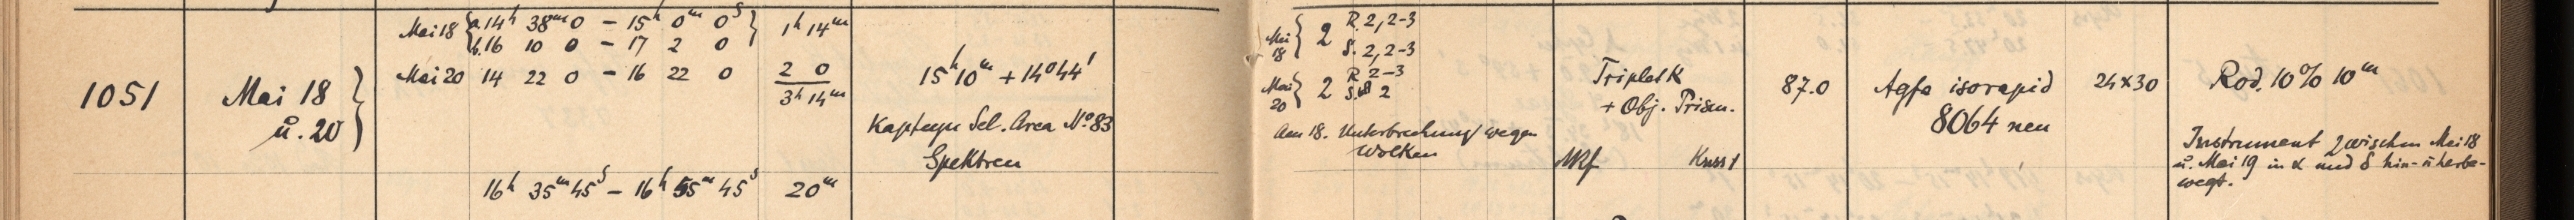 Mai 18 { a. 14h 38m 0 – 15h 0m 0s } 1h 14m
b. 16 10 0 – 17 2 0
1051 Mai 18 } Mai 20 14 22 0 – 16 22 0 2 0
u. 20 3h 14m
15h 10m + 14° 44'
Kapteyn Sel. Area No. 83
Spektren
16h 35m 45s – 16h 55m 45s 20m
Mai 18 { 2 R. 2, 2-3
S. 2, 2-3
Mai 20 } 2 R 2-3
S. 2
Am 18. Unterbrechung wegen
Wolken
Triplet K
+ Obj. Prism.
87.0
Agfa isorapid
8064 neu
24×30
Rod. 10% 10m
Instrument zwischen Mai 18
u. Mai 19 in α und δ hin- u herbe-
wegt.